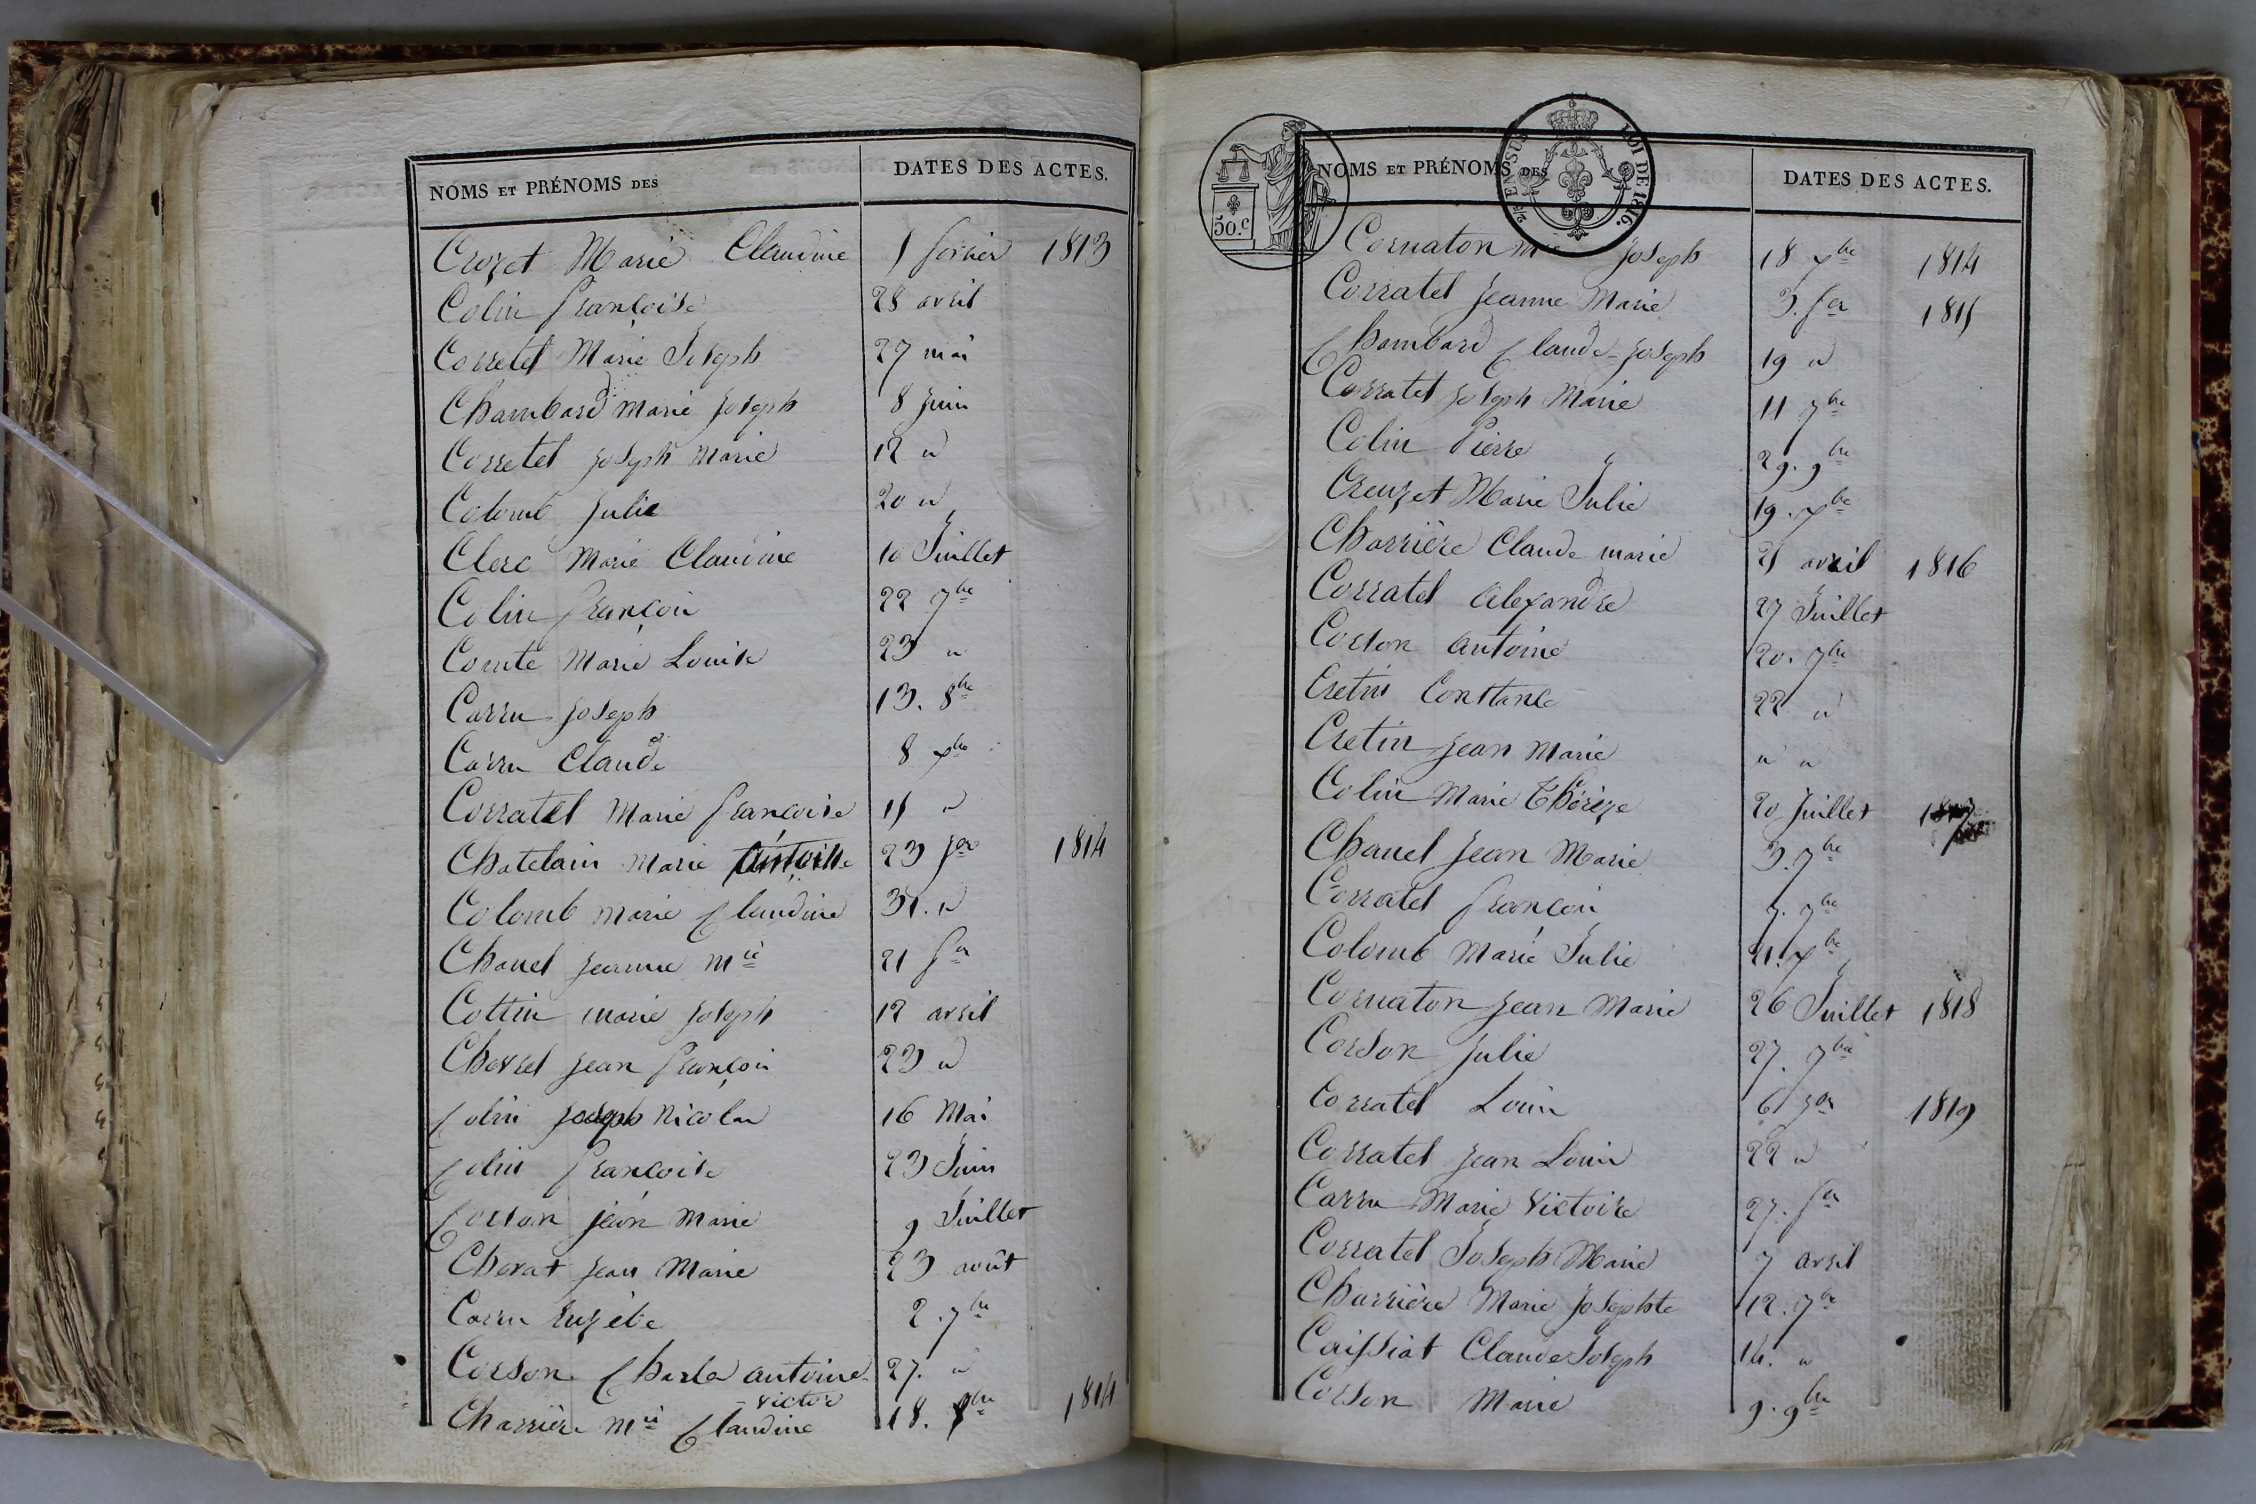 NOMS ET PRÉNOMS DES DATES DES ACTES.
Crozet Marie Claudine 5 fevrier 1813
Colin françoise 28 avril
Corretel Marie Joseph 27 mai
Chambard marie Joseph 8 Juin
Corretel Joseph marie 12 d
Colomb Julie 20 d
Clerc Marie Claudine 10 Juillet
Colin françois 22 7bre
Comte Marie Louise 23 d
Carru Joseph 13. 8bre
Carru Claude 8 xbre
Corratel Marie françoise 15 d
Chatelain Marie 23 jer 1814
Colomb marie Claudine 31. d
Chanel jeanne mie 21 fer
Cottin marie Joseph 12 avril
Chevrel jean françois 23 d
Colin Joseph nicolas 16 Mai
Colin françoise 23 Juin
Corson jean Marie 9 Juillet
Chevat jean Marie 23 août
Carru Euzèbe 2. 7bre
Corson Charles antoine 27. d
victor
Charrière mie Claudine 18. bre 1814
NOMS ET PRÉNOMS DES DATES DES ACTES.
50.C
EN SUS
LOI DE 1816.
Cornaton Joseph 18 xbre 1814
Corratel Jeanne Marie 3. fer 1815
Chambard Claude-Joseph 19 d
Corratel Joseph Marie 11 7bre
Colin Pierre 29. 9bre
Creuzet Marie Julie 19. xbre
Charrière Claude marie 25 avril 1816
Corratel Alexandre 27 Juillet
Corson antoine 20. 7bre
Cretin Constance 22 d
Cretin Jean Marie d d
Colin Marie Thérèze 20 Juillet
Chanel Jean Marie 3. 7bre
Corratel françois 7. 7bre
Colomb Marie Julie 21. xbre
Cornaton Jean Marie 26 Juillet 1818
Corson Julie 27. 7bre
Corratel Louis 6 jer 1819
Corratel Jean Louis 22 d
Carru Marie Victoire 27. fer
Corratel Joseph Marie 7 avril
Charrière Marie Josephte 12. 7bre
Caissiat Claude Joseph 14. d
Corson Marie 9. 9bre